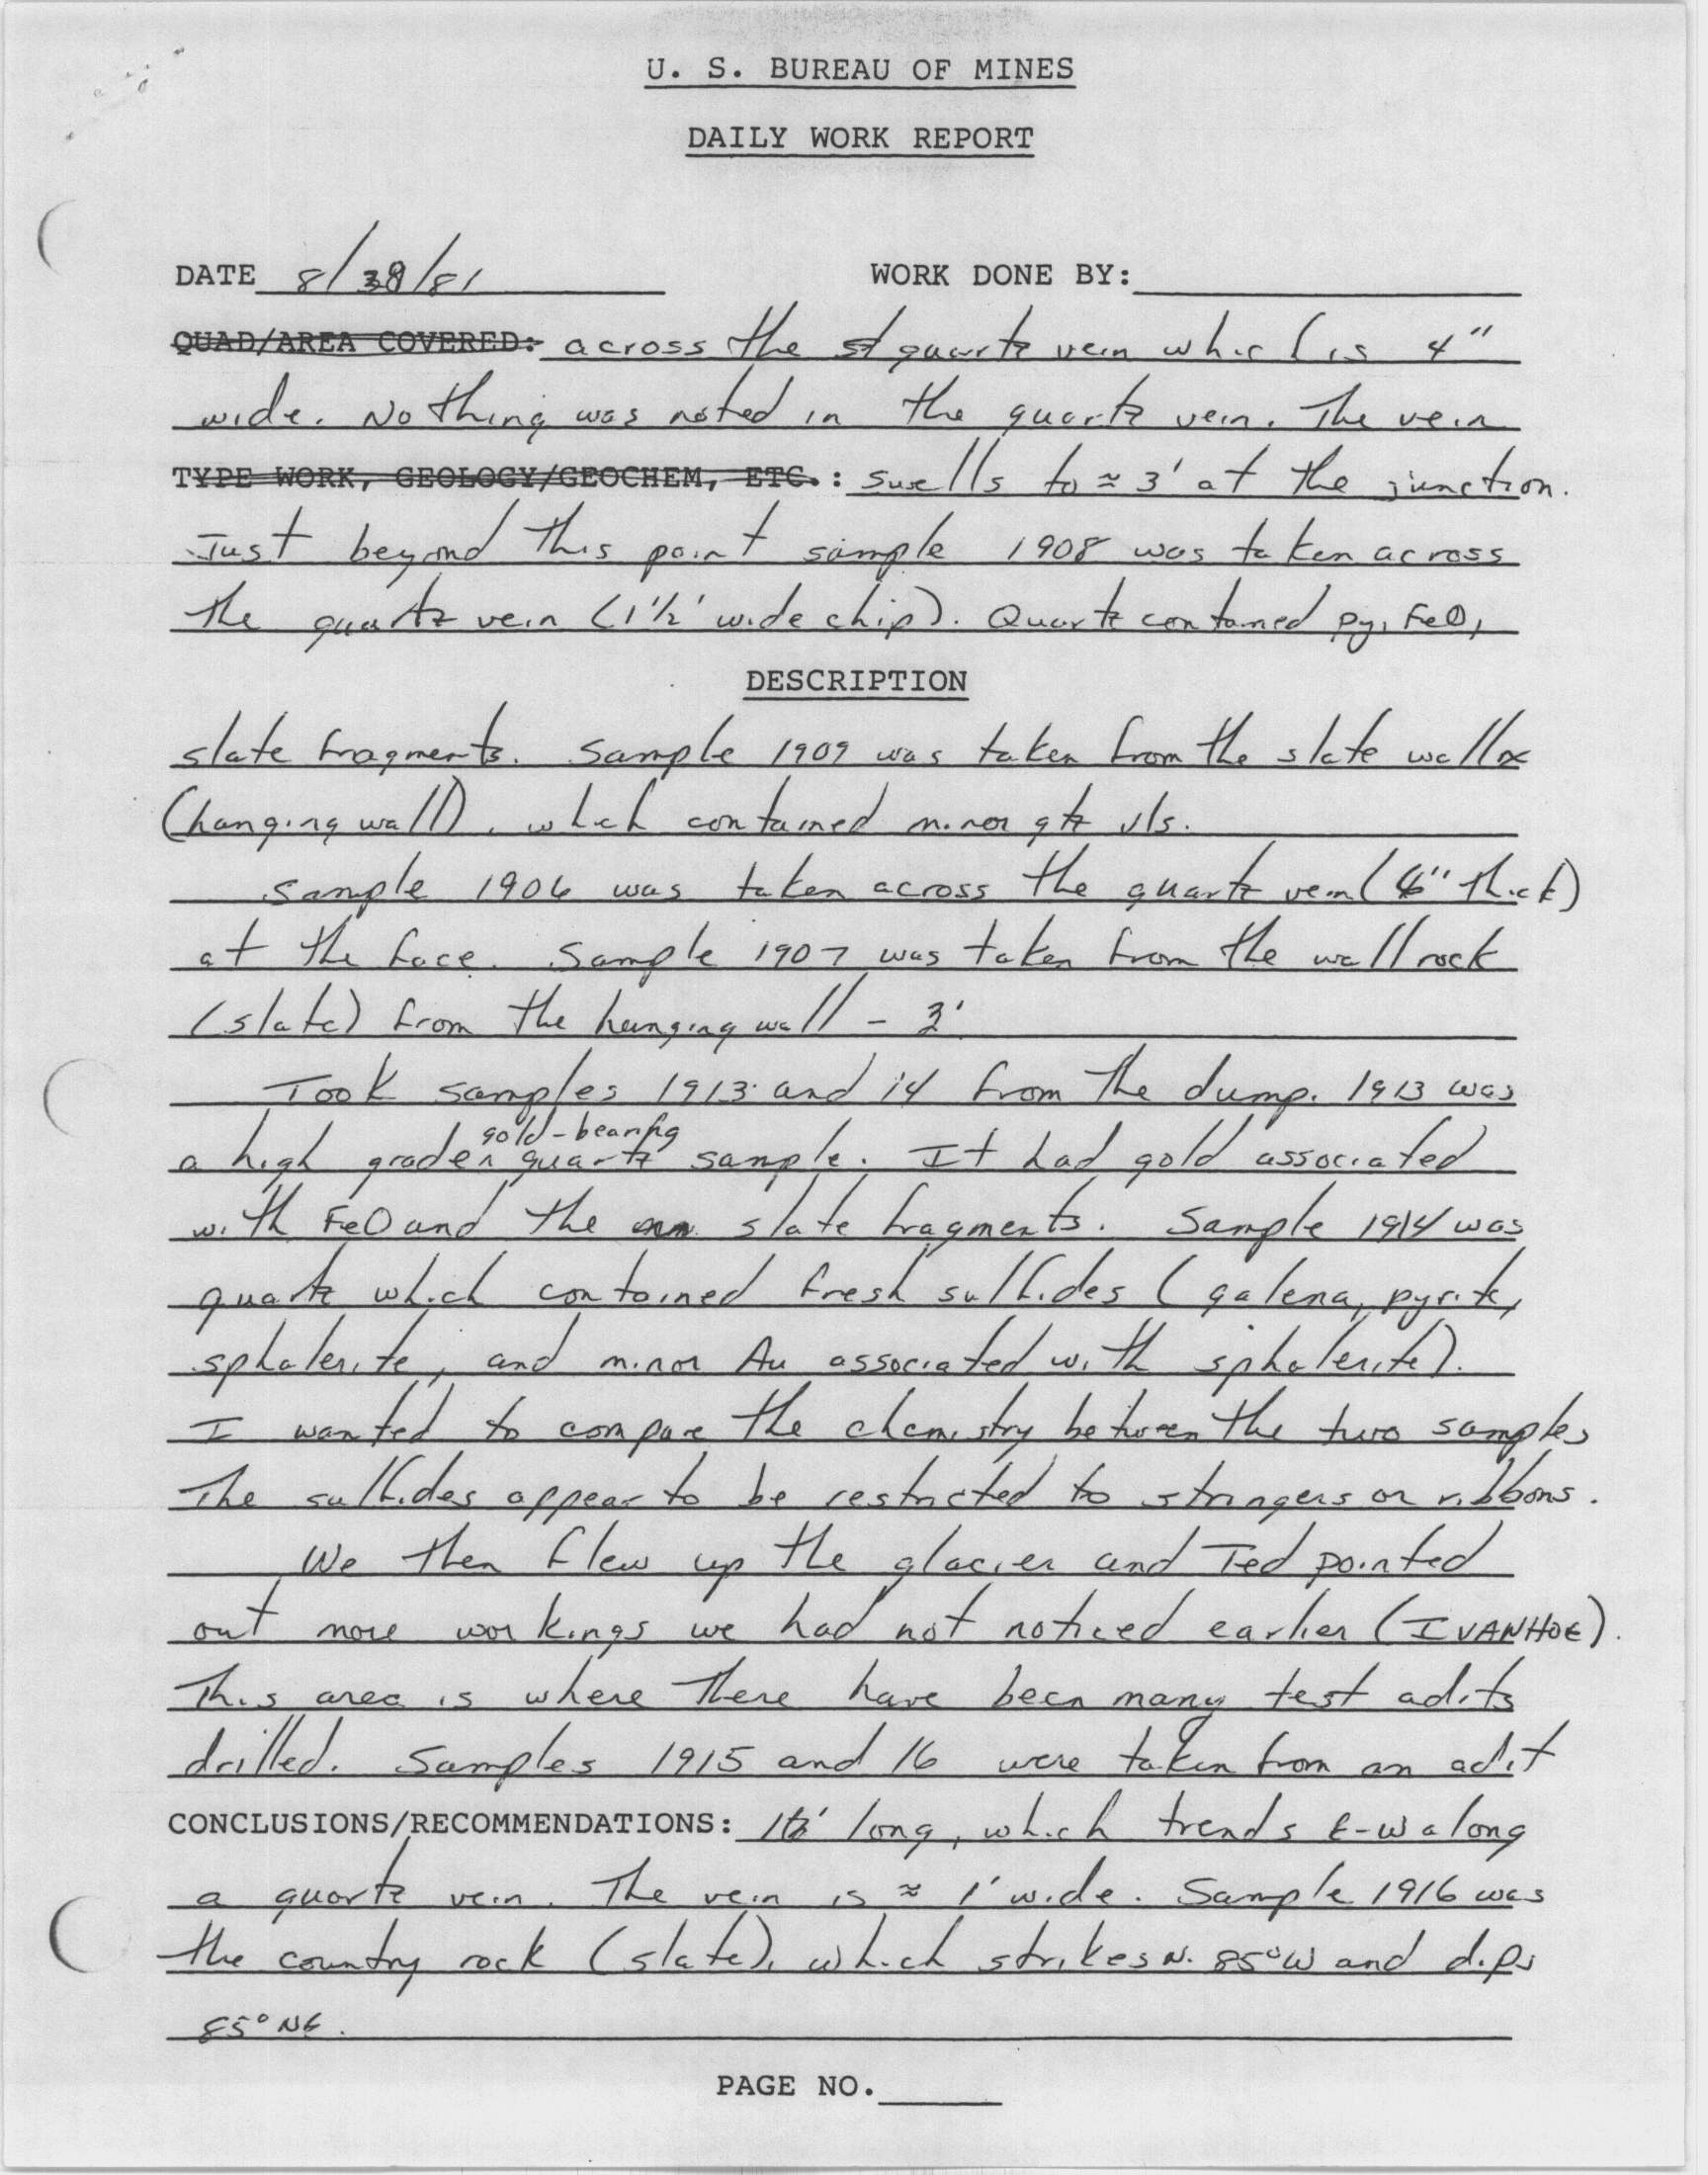 U. S. BUREAU OF MINES
DAILY WORK REPORT
DATE 8/ /81 WORK DONE BY:
QUAD/AREA COVERED: across the quartz vein which is 4"
wide. Nothing was noted in the quartz vein. The vein
TYPE WORK, GEOLOGY/GEOCHEM, ETC.: swells to ≈ 3' at the junction.
Just beyond this point sample 1908 was taken across
the quartz vein (1 1/2' wide chip). Quartz contained py, FeO,
DESCRIPTION
slate fragments. Sample 1909 was taken from the slate wallrx
(hanging wall), which contained minor qtz vls.
Sample 1906 was taken across the quartz vein ( thick)
at the face. Sample 1907 was taken from the wall rock
(slate) from the hanging wall - 3'
Took samples 1913 and 14 from the dump. 1913 was
a high grade gold-bearing quartz sample. It had gold associated
with FeO and the slate fragments. Sample 1914 was
quartz which contained fresh sulfides (galena, pyrite,
sphalerite, and minor Au associated with sphalerite).
I wanted to compare the chemistry between the two samples
The sulfides appear to be restricted to stringers or ribbons.
We then flew up the glacier and Ted pointed
out more workings we had not noticed earlier (IVANHOE).
This area is where there have been many test adits
drilled. Samples 1915 and 16 were taken from an adit
CONCLUSIONS/RECOMMENDATIONS: long, which trends E-W along
a quartz vein. The vein is ≈ 1' wide. Sample 1916 was
the country rock (slate), which strikes N. 85°W and dips
85° NE.
PAGE NO.